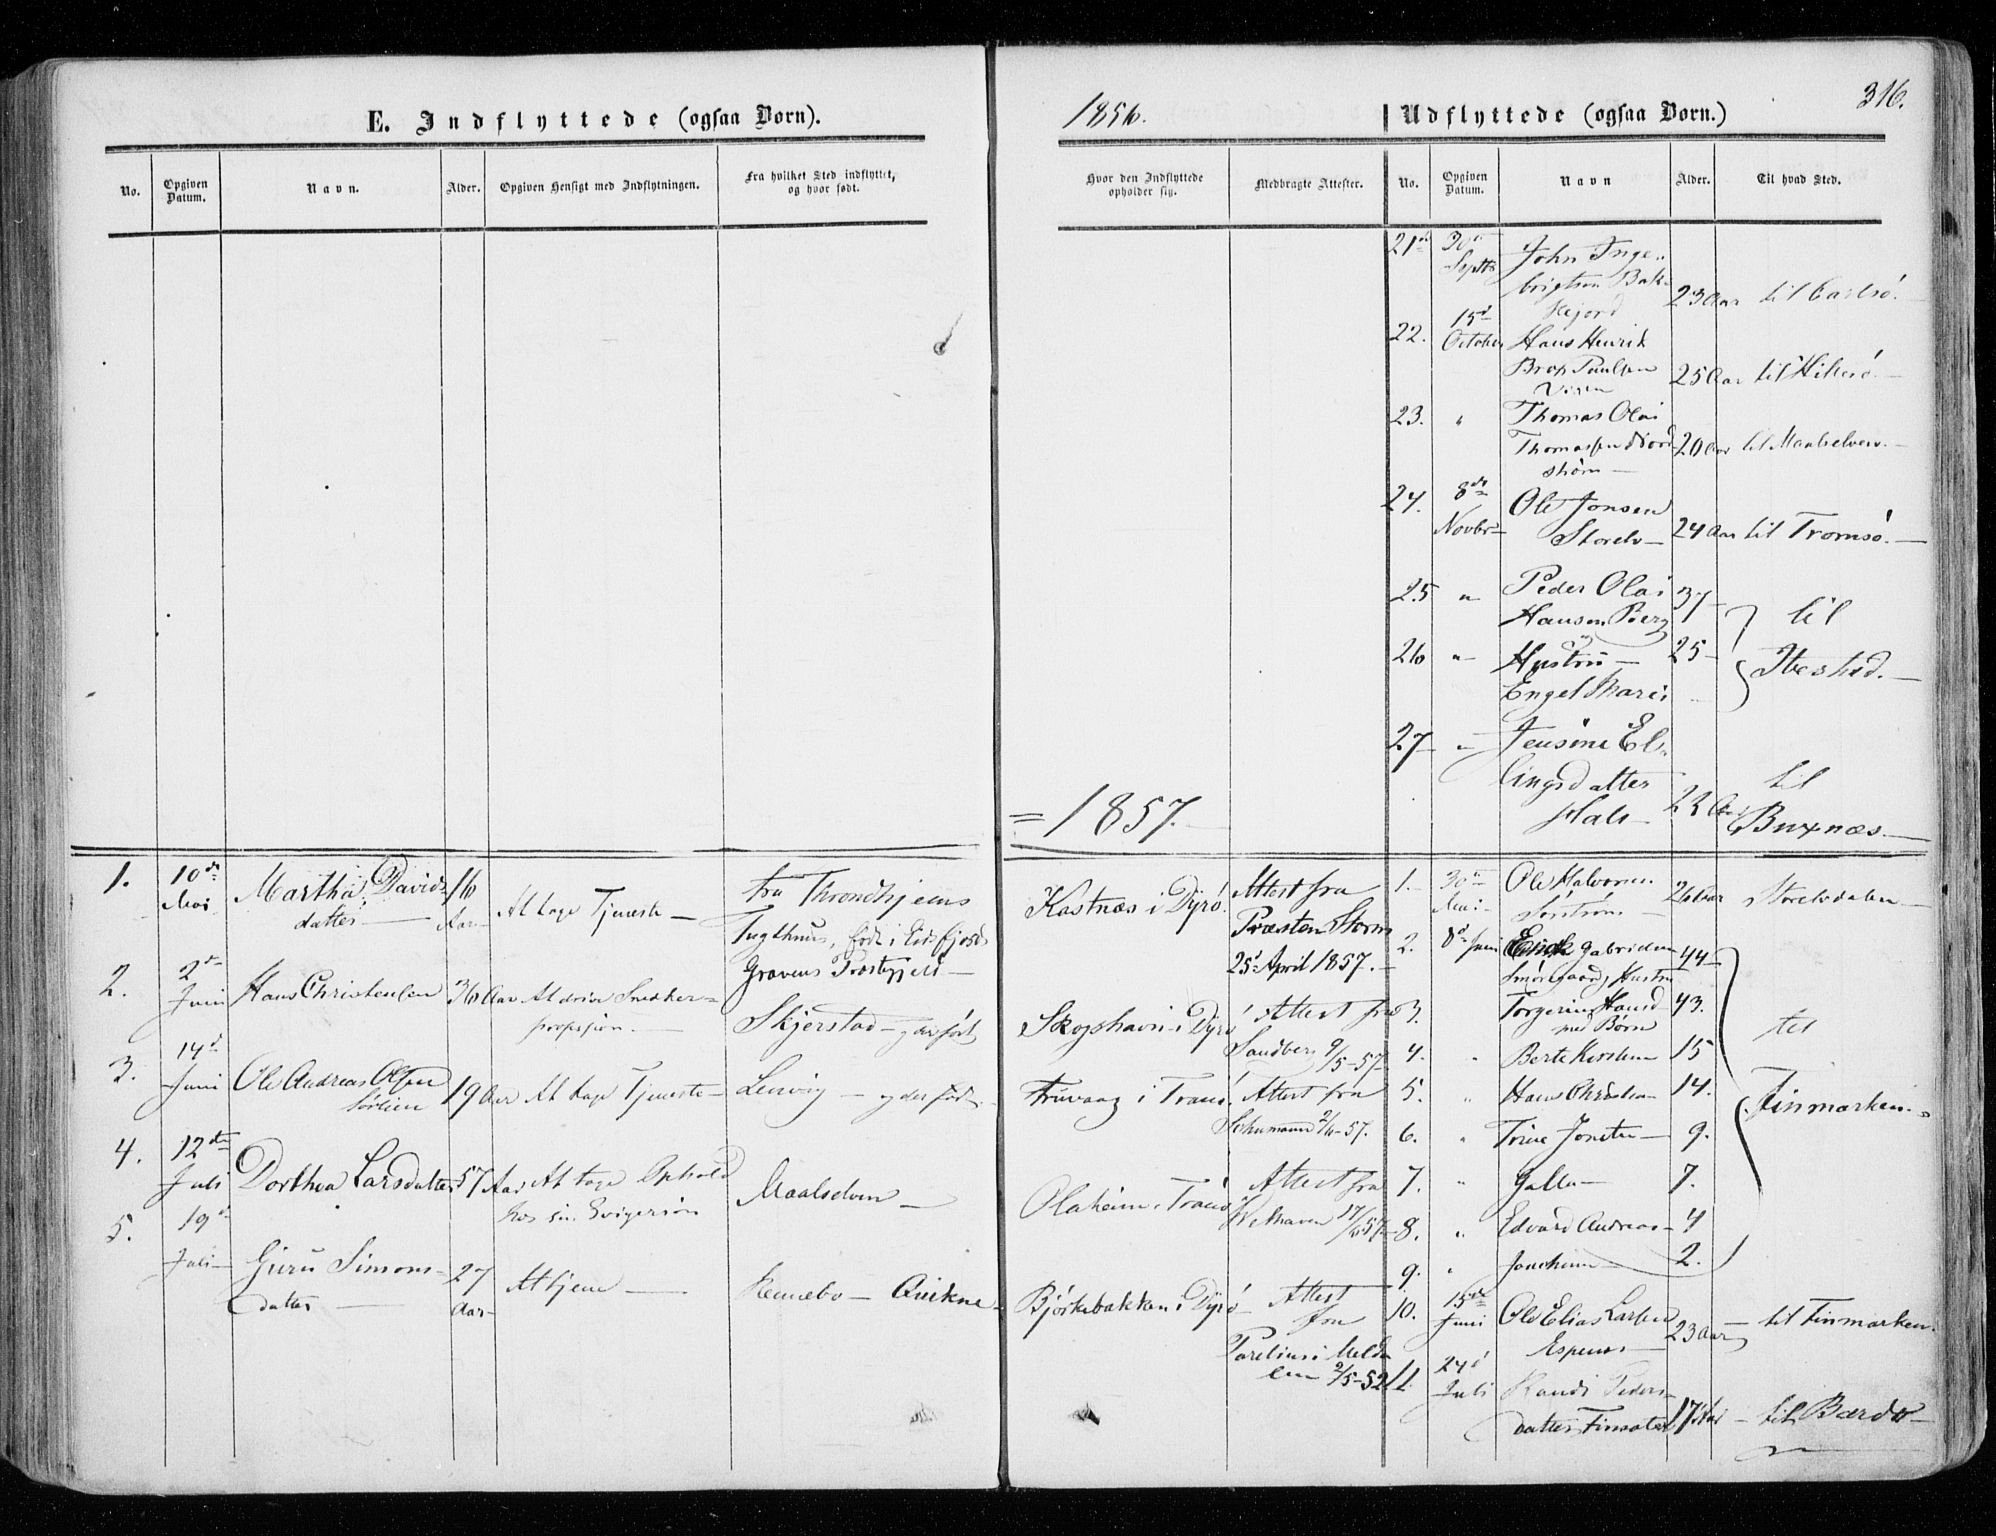 E. Indflyttede (ogsaa Børn).
No.
Opgiven Datum.
Navn.
Alder.
Opgiven Hensigt med Indflytningen.
Fra hvilket Sted indflyttet, og hvor født.
1.
10de
Mai
Martha Davids
datter
16
Aar
At tage Tjeneste
fra Throndhjems
Tugthuus, født i Eidsfjord
Gravens Præstegjeld
2.
2den
Juni
Hans Christensen
36 Aar
At drive Snedker-
profession.
Skjerstad - og der født
3.
14d
Juni
Ole Andreas Olsen
Sørlien
19 Aar
At tage Tjeneste
Lenvig - og der født
4.
12te
Juli
Dorthea Larsdatter
57 Aar
At tage Ophold
hos sin
Maalselven
5.
19d
Juli
Guru Simons-
datter
27
Aar
At tjene
Rennebo - Qvikne
1856.
Udflyttede (ogsaa Børn.)
316.
Hvor den Indflyttede opholder sig.
Medbragte Attester.
No.
Opgiven Datum.
Navn
Alder.
Til hvad Sted.
21de
30te
Septbr
John Inge-
brigtsen Bak-
kejord
23 Aar
til Carlsø.
22.
15d
October
Hans Henrik
Brox Paulsen
Vigen
25 Aar
til Hitterø.
23.
"
Thomas Olai
Thomassen
20 Aar
til Maalselven.
24.
8de
Novbr
Ole Jonsen
Storelv
24 Aar
til Tromsø.
25
"
Peder Olai
Hansen Berg
37
til
26
"
og
Hustru
Engel Marie
25
Ibestad.
27
"
Jensine El-
lingsdatter
Hals
23 Aar
til
Buxnæs
= 1857.
Kastnæs i Dyrø.
Attest fra
Præsten Storm
25d April 1857.
Skogshavn i Dyrø
Attest fra
Sandberg 9/5-57
Trüvaag i Tranø.
Attest fra
Schumann 2/6-57.
Olaheim i Tranø
Attest fra
17/6 57
Bjørkebakken i Dyrø
Attest
fra
Parelius i Melda
len 2/5-52
1.
30te
Mai
Ole Halvorsen
Sørstrøm
26 Aar
Storelvdalen
2.
8d Juni
Erick Gabrielsen
Smørsgaard, Hustru
44
3.
Torgerine Hansd
med Børn
43.
til
4.
"
Berte Kirstine
15
5.
"
Hans Christian
14.
Finmarken.
6.
"
Trine Jonette
9.
7.
"
7.
8.
"
Edvard Andreas
4
9.
"
Joachim
2.
10.
15de
Juni
Ole Elias Larsen
Espenes
23 Aar
til Finmarken.
11.
24d
Juli
Randi Peders-
datter Finsæter
17 Aar
til Bardo